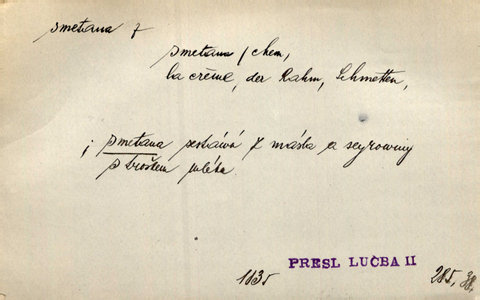 smetana f
smetana / chem,
la crème, der Rahm, Schmetten,
; smetana sestává z másla a seyroviny
s trošlem mléka.
1835
PRESL LUČBA II
285, 38.